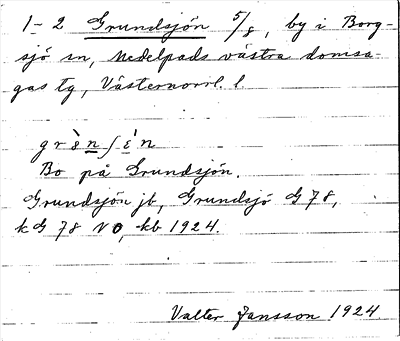 1-2 Grundsjön 5/8, by i Borg-
sjö sn, Medelpads västra domsa-
gas tg, Västernorrl. l.
Bo på Grundsjön.
Grundsjön jb, Grundsjö G 78,
k G 78 NO, kb 1924.
Valter Jansson 1924.